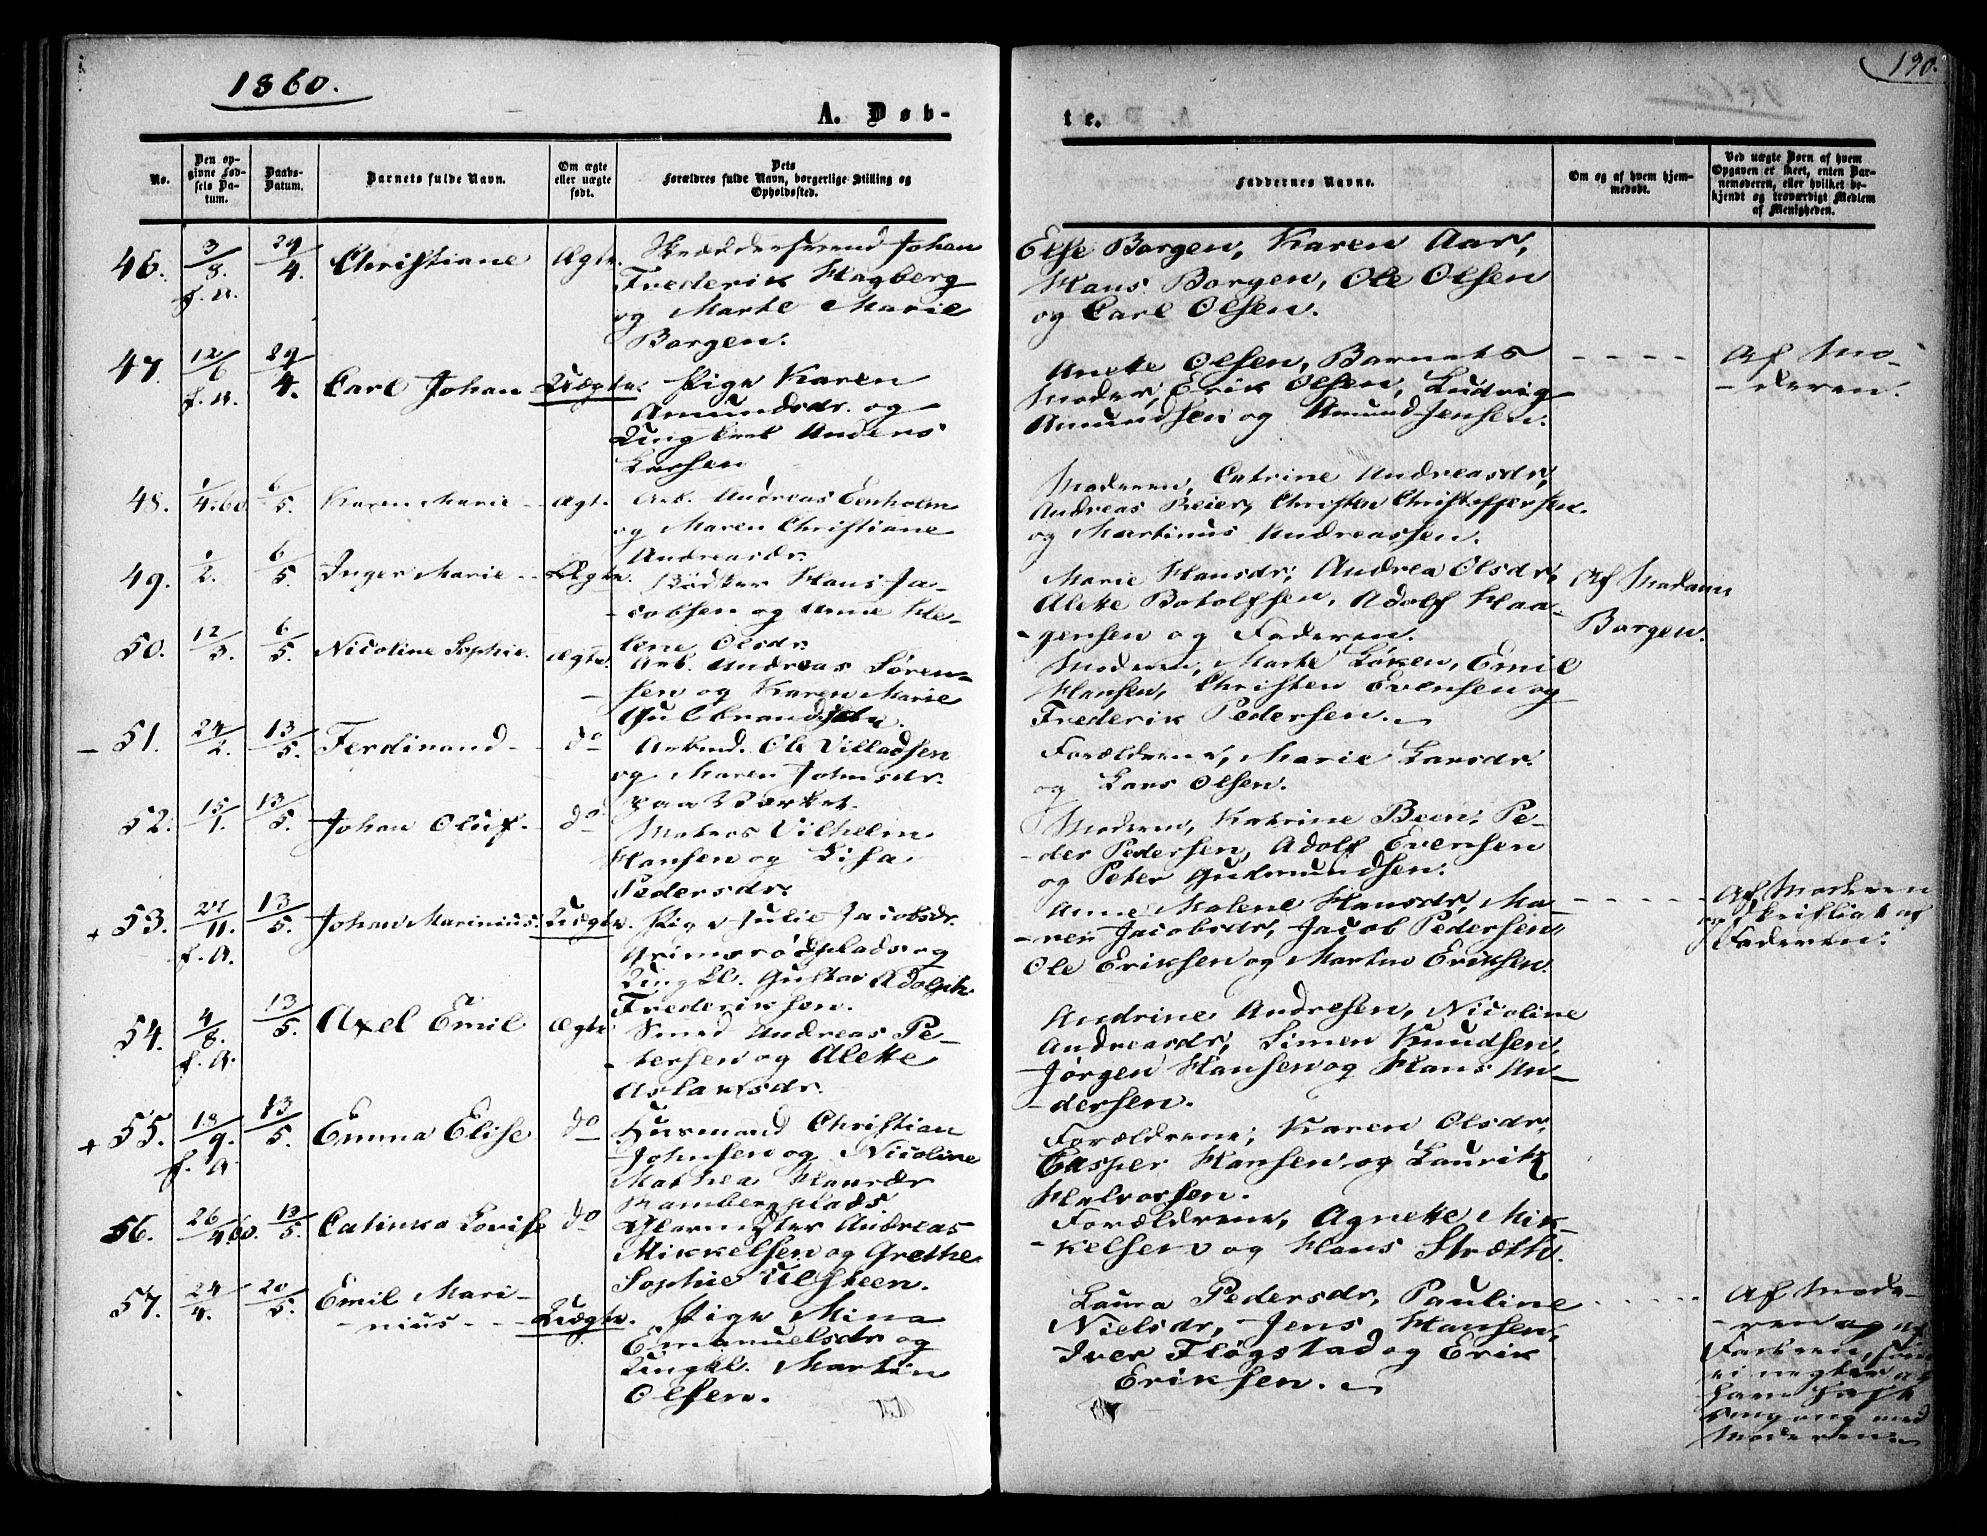 1860.
190.
A. Døb-
te.
No.
Den op-
givne Fød-
sels Da-
tum.
Daabs-
Datum.
Barnets fulde Navn.
Om ægte
eller uægte
født.
Dets
Forældres fulde Navn, borgerlige Stilling og
Opholdssted.
Faddernes Navne.
Om og af hvem hjem-
medøbt.
Ved uægte Børn af hvem
Opgaven er skeet, enten Bar-
nemoderen, eller hvilket be-
kjendt og troværdigt Medlem
af Menigheden.
46. 3/8. f. A. 29/4. Christiane Ægte.
Skræddersvend Johan
Frederik Hagberg
og Marthe Marie
Borgen.
Else Borgen, Karen Aar,
Hans Borgen, Ole Olsen
og Carl Olsen.
47. 12/6 f. A. 29/4. Carl Johan Uægte.
Pige Karen
Amundsdr. og
Ungkarl Anders
Larsen
Anette Olsen, Barnets
Moder, Erik Olsen, Ludvig
Amundsen og Amund Jensen.
Af Mo-
deren.
48. 1/4.60. 6/5. Karen Marie Ægte.
Arb. Andreas Evenholm
og Maren Christiane
Andreasdr.
Moderen, Catrine Andreasdr,
Andreas Reier, Christen Christoffersen.
og Martinus Andreassen.
49. 1/2. 6/5. Inger Marie Ægte.
Bødker Hans Ja-
cobsen og Anne He-
lene Olsdr.
Marie Hansdr, Andrea Olsdr,
Alette Botolfsen, Adolf Haa-
gensen og Faderen.
Af Madam
Borgen.
50. 12/3. 6/5. Nicoline Sophie. Ægte.
Arb. Andreas Søren-
sen og Karen Marie
Gulbrandsdtr.
Moderen, Marthe Løken, Emil
Hansen, Christen Evensen og
Frederik Pedersen.
51. 24/2. 13/5. Ferdinand do
Arbmd. Ole Villadsen
og Maren Johnsdr.
paa Værket.
Forældrene, Marie Larsdr.
og Lars Olsen.
52. 15/1. 13/5. Johan Oluf. do
Matros Vilhelm
Hansen og Lisa
Pedersdr.
Moderen, Katrine Been, Pe-
der Pedersen, Adolf Evensen
og Peter Gudmundsen.
+ 53. 27/11. f. A. 13/5. Johan Marinius. Uægte.
Pige Julie Jacobsdr.
Grimsrødplads og
Ungkl. Gustav Adolph
Frederiksen.
Anne Malene Hansdr, Ma-
ren Jacobsdr, Jacob Pedersen,
Ole Eriksen og Martin Eriksen.
Af Moderen
og skriftligt af
Faderen.
54. 4/8. f. A. 13/5. Axel Emil Ægte
Smed Andreas Pe-
tersen og Alette
Aslaksdr.
Andrine Andresen, Nicoline
Andreasdr, Simen Knudsen,
Jørgen Hansen og Hans An-
dersen.
+ 55. 13/9. f. A. 13/5. Emma Elise do
Husmand Christian
Johnsen og Nicoline
Mathea Hansdr
Kambergplads.
Forældrene, Karen Olsdr,
Casper Hansen og Laurik
Halvorsen.
56. 26/4.60. 13/5. Catinka Lovise do
Garmester Andreas
Mikkelsen og Grethe
Sophie Ulsteen.
Forældrene, Agnette Mik-
kelsen og Hans Stræth.
57. 24/4. 20/5. Emil Mari-
nius Uægte.
Pige Mina
Emanuelsdr og
Ungkl. Martin
Olsen.
Laura Pedersdr, Pauline
Nielsdr, Jens Hansen,
Iver Fløgstad og Erik
Eriksen.
Af Mode-
ren og af
Faderen, som
ei negter at
have havt
omgang med
Moderen